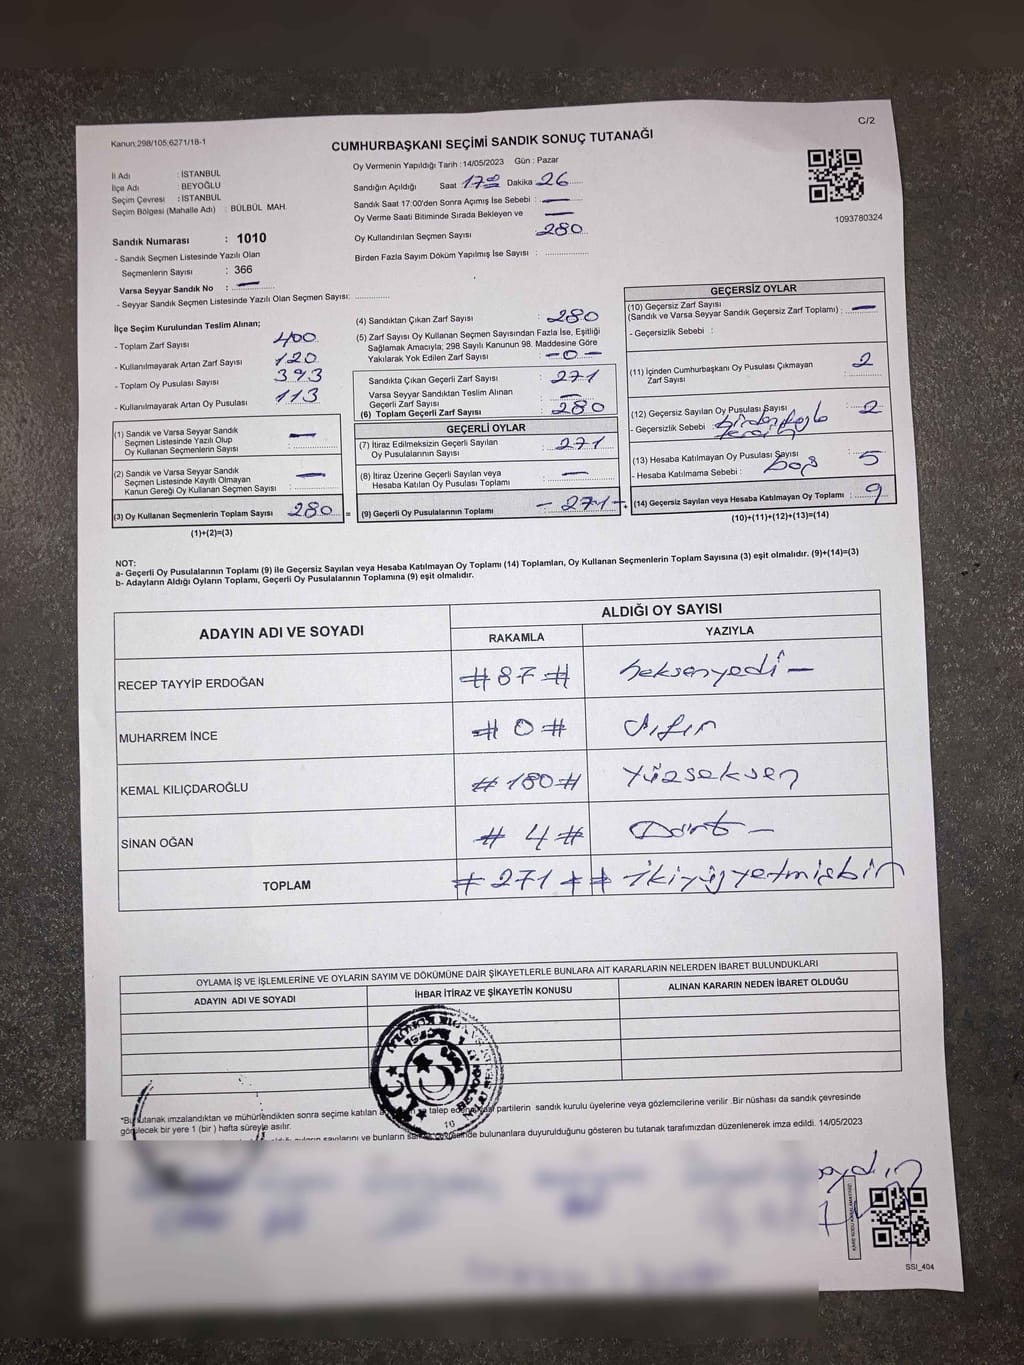 Kanun:298/105,6271/18-1
C/2
CUMHURBAŞKANI SEÇİMİ SANDIK SONUÇ TUTANAĞI
İl Adı : İSTANBUL
İlçe Adı : BEYOĞLU
Seçim Çevresi : İSTANBUL
Seçim Bölgesi (Mahalle Adı) : BÜLBÜL MAH.
Sandık Numarası : 1010
- Sandık Seçmen Listesinde Yazılı Olan
Seçmenlerin Sayısı : 366
Varsa Seyyar Sandık No : —
- Seyyar Sandık Seçmen Listesinde Yazılı Olan Seçmen Sayısı: ............
Oy Vermenin Yapıldığı Tarih : 14/05/2023 Gün : Pazar
Sandığın Açıldığı Saat 17:00 Dakika 26
Sandık Saat 17:00'den Sonra Açımış İse Sebebi : —
Oy Verme Saati Bitiminde Sırada Bekleyen ve —
Oy Kullandırılan Seçmen Sayısı 280
Birden Fazla Sayım Döküm Yapılmış İse Sayısı : ............
1093780324
İlçe Seçim Kurulundan Teslim Alınan;
- Toplam Zarf Sayısı 400
- Kullanılmayarak Artan Zarf Sayısı 120
- Toplam Oy Pusulası Sayısı 393
- Kullanılmayarak Artan Oy Pusulası 113
(1) Sandık ve Varsa Seyyar Sandık
Seçmen Listesinde Yazılı Olup
Oy Kullanan Seçmenlerin Sayısı —
(2) Sandık ve Varsa Seyyar Sandık
Seçmen Listesinde Kayıtlı Olmayan
Kanun Gereği Oy Kullanan Seçmen Sayısı : —
(3) Oy Kullanan Seçmenlerin Toplam Sayısı 280 =
(1)+(2)=(3)
(4) Sandıktan Çıkan Zarf Sayısı : 280
(5) Zarf Sayısı Oy Kullanan Seçmen Sayısından Fazla İse, Eşitliği
Sağlamak Amacıyla; 298 Sayılı Kanunun 98. Maddesine Göre
Yakılarak Yok Edilen Zarf Sayısı : —0—
Sandıkta Çıkan Geçerli Zarf Sayısı : 271
Varsa Seyyar Sandıktan Teslim Alınan
Geçerli Zarf Sayısı : —
(6) Toplam Geçerli Zarf Sayısı : 280
GEÇERLİ OYLAR
(7) İtiraz Edilmeksizin Geçerli Sayılan
Oy Pusulalarının Sayısı : 271
(8) İtiraz Üzerine Geçerli Sayılan veya
Hesaba Katılan Oy Pusulası Toplamı —
(9) Geçerli Oy Pusulalarının Toplamı - 271 +
GEÇERSİZ OYLAR
(10) Geçersiz Zarf Sayısı
(Sandık ve Varsa Seyyar Sandık Geçersiz Zarf Toplamı) : —
- Geçersizlik Sebebi :
(11) İçinden Cumhurbaşkanı Oy Pusulası Çıkmayan
Zarf Sayısı : 2
(12) Geçersiz Sayılan Oy Pusulası Sayısı : 2
- Geçersizlik Sebebi : birden fazla
(13) Hesaba Katılmayan Oy Pusulası Sayısı : 5
- Hesaba Katılmama Sebebi : boş
(14) Geçersiz Sayılan veya Hesaba Katılmayan Oy Toplamı : 9
(10)+(11)+(12)+(13)=(14)
NOT:
a- Geçerli Oy Pusulalarının Toplamı (9) ile Geçersiz Sayılan veya Hesaba Katılmayan Oy Toplamı (14) Toplamları, Oy Kullanan Seçmenlerin Toplam Sayısına (3) eşit olmalıdır. (9)+(14)=(3)
b- Adayların Aldığı Oyların Toplamı, Geçerli Oy Pusulalarının Toplamına (9) eşit olmalıdır.
ADAYIN ADI VE SOYADI
ALDIĞI OY SAYISI
RAKAMLA YAZIYLA
RECEP TAYYİP ERDOĞAN #87# seksenyedi —
MUHARREM İNCE # 0 # sıfır
KEMAL KILIÇDAROĞLU # 180 # yüzseksen
SİNAN OĞAN # 4 # Dört —
TOPLAM # 271 # # ikiyüzyetmişbir
OYLAMA İŞ VE İŞLEMLERİNE VE OYLARIN SAYIM VE DÖKÜMÜNE DAİR ŞİKAYETLERLE BUNLARA AİT KARARLARIN NELERDEN İBARET BULUNDUKLARI
ADAYIN ADI VE SOYADI İHBAR İTİRAZ VE ŞİKAYETİN KONUSU ALINAN KARARIN NEDEN İBARET OLDUĞU
T.C.
*Bu tutanak imzalandıktan ve mühürlendikten sonra seçime katılan talep eden partilerin sandık kurulu üyelerine veya gözlemcilerine verilir .Bir nüshası da sandık çevresinde
görülecek bir yere 1 (bir ) hafta süreyle asılır.
bulunanlara duyurulduğunu gösteren bu tutanak tarafımızdan düzenlenerek imza edildi. 14/05/2023
SSI_404